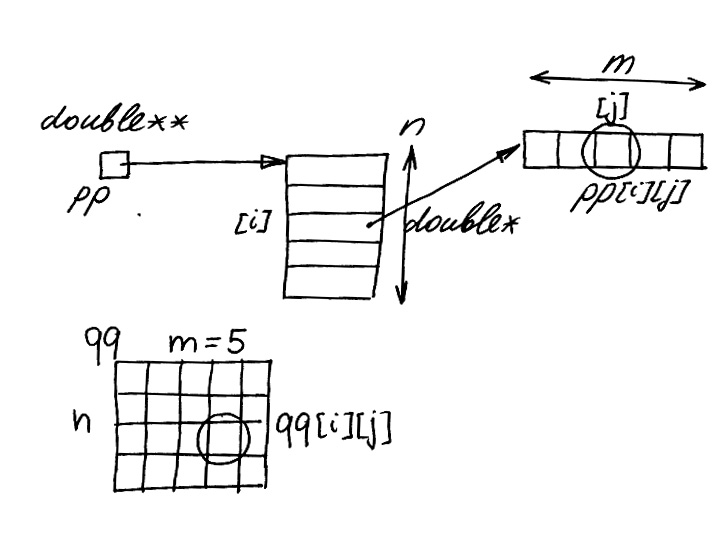 double**
pp
[i]
n
double*
m
[j]
pp[i][j]
qq
m=5
n
qq[i][j]